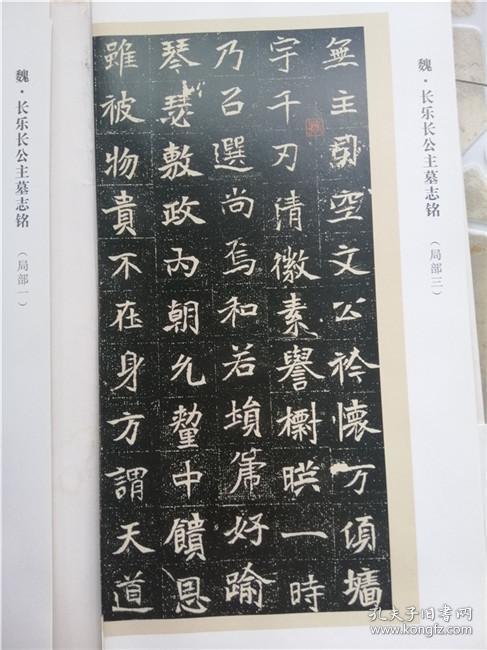 魏·长乐长公主墓志铭
(局部三)
無主制空文公衿懷万傾墻
宇千刃清徽素譽櫥暎一時
乃召選尚焉和若塤箎好踰
琴瑟敷政两朝允釐中饋恩
雖被物貴不在身方謂天道
魏·长乐长公主墓志铭
(局部一)
孔夫子旧书网
www.kongfz.com